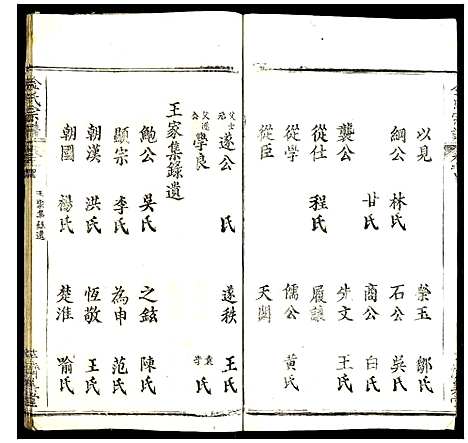 以見 榮玉 鄒氏
綱公 林氏 石公 吳氏
甘氏 商公 白氏
襲公 先文 王氏
從仕 程氏 履謙
從學 儒公 黃氏
從臣 天閏
遂公 氏 遂秩 王氏
學良 氏
王家集錄遺
鮑公 吳氏 之鉉 陳氏
顯宗 李氏 為申 范氏
朝漢 洪氏 恆敬 王氏
朝國 楊氏 楚淮 喻氏
王家集錄遺